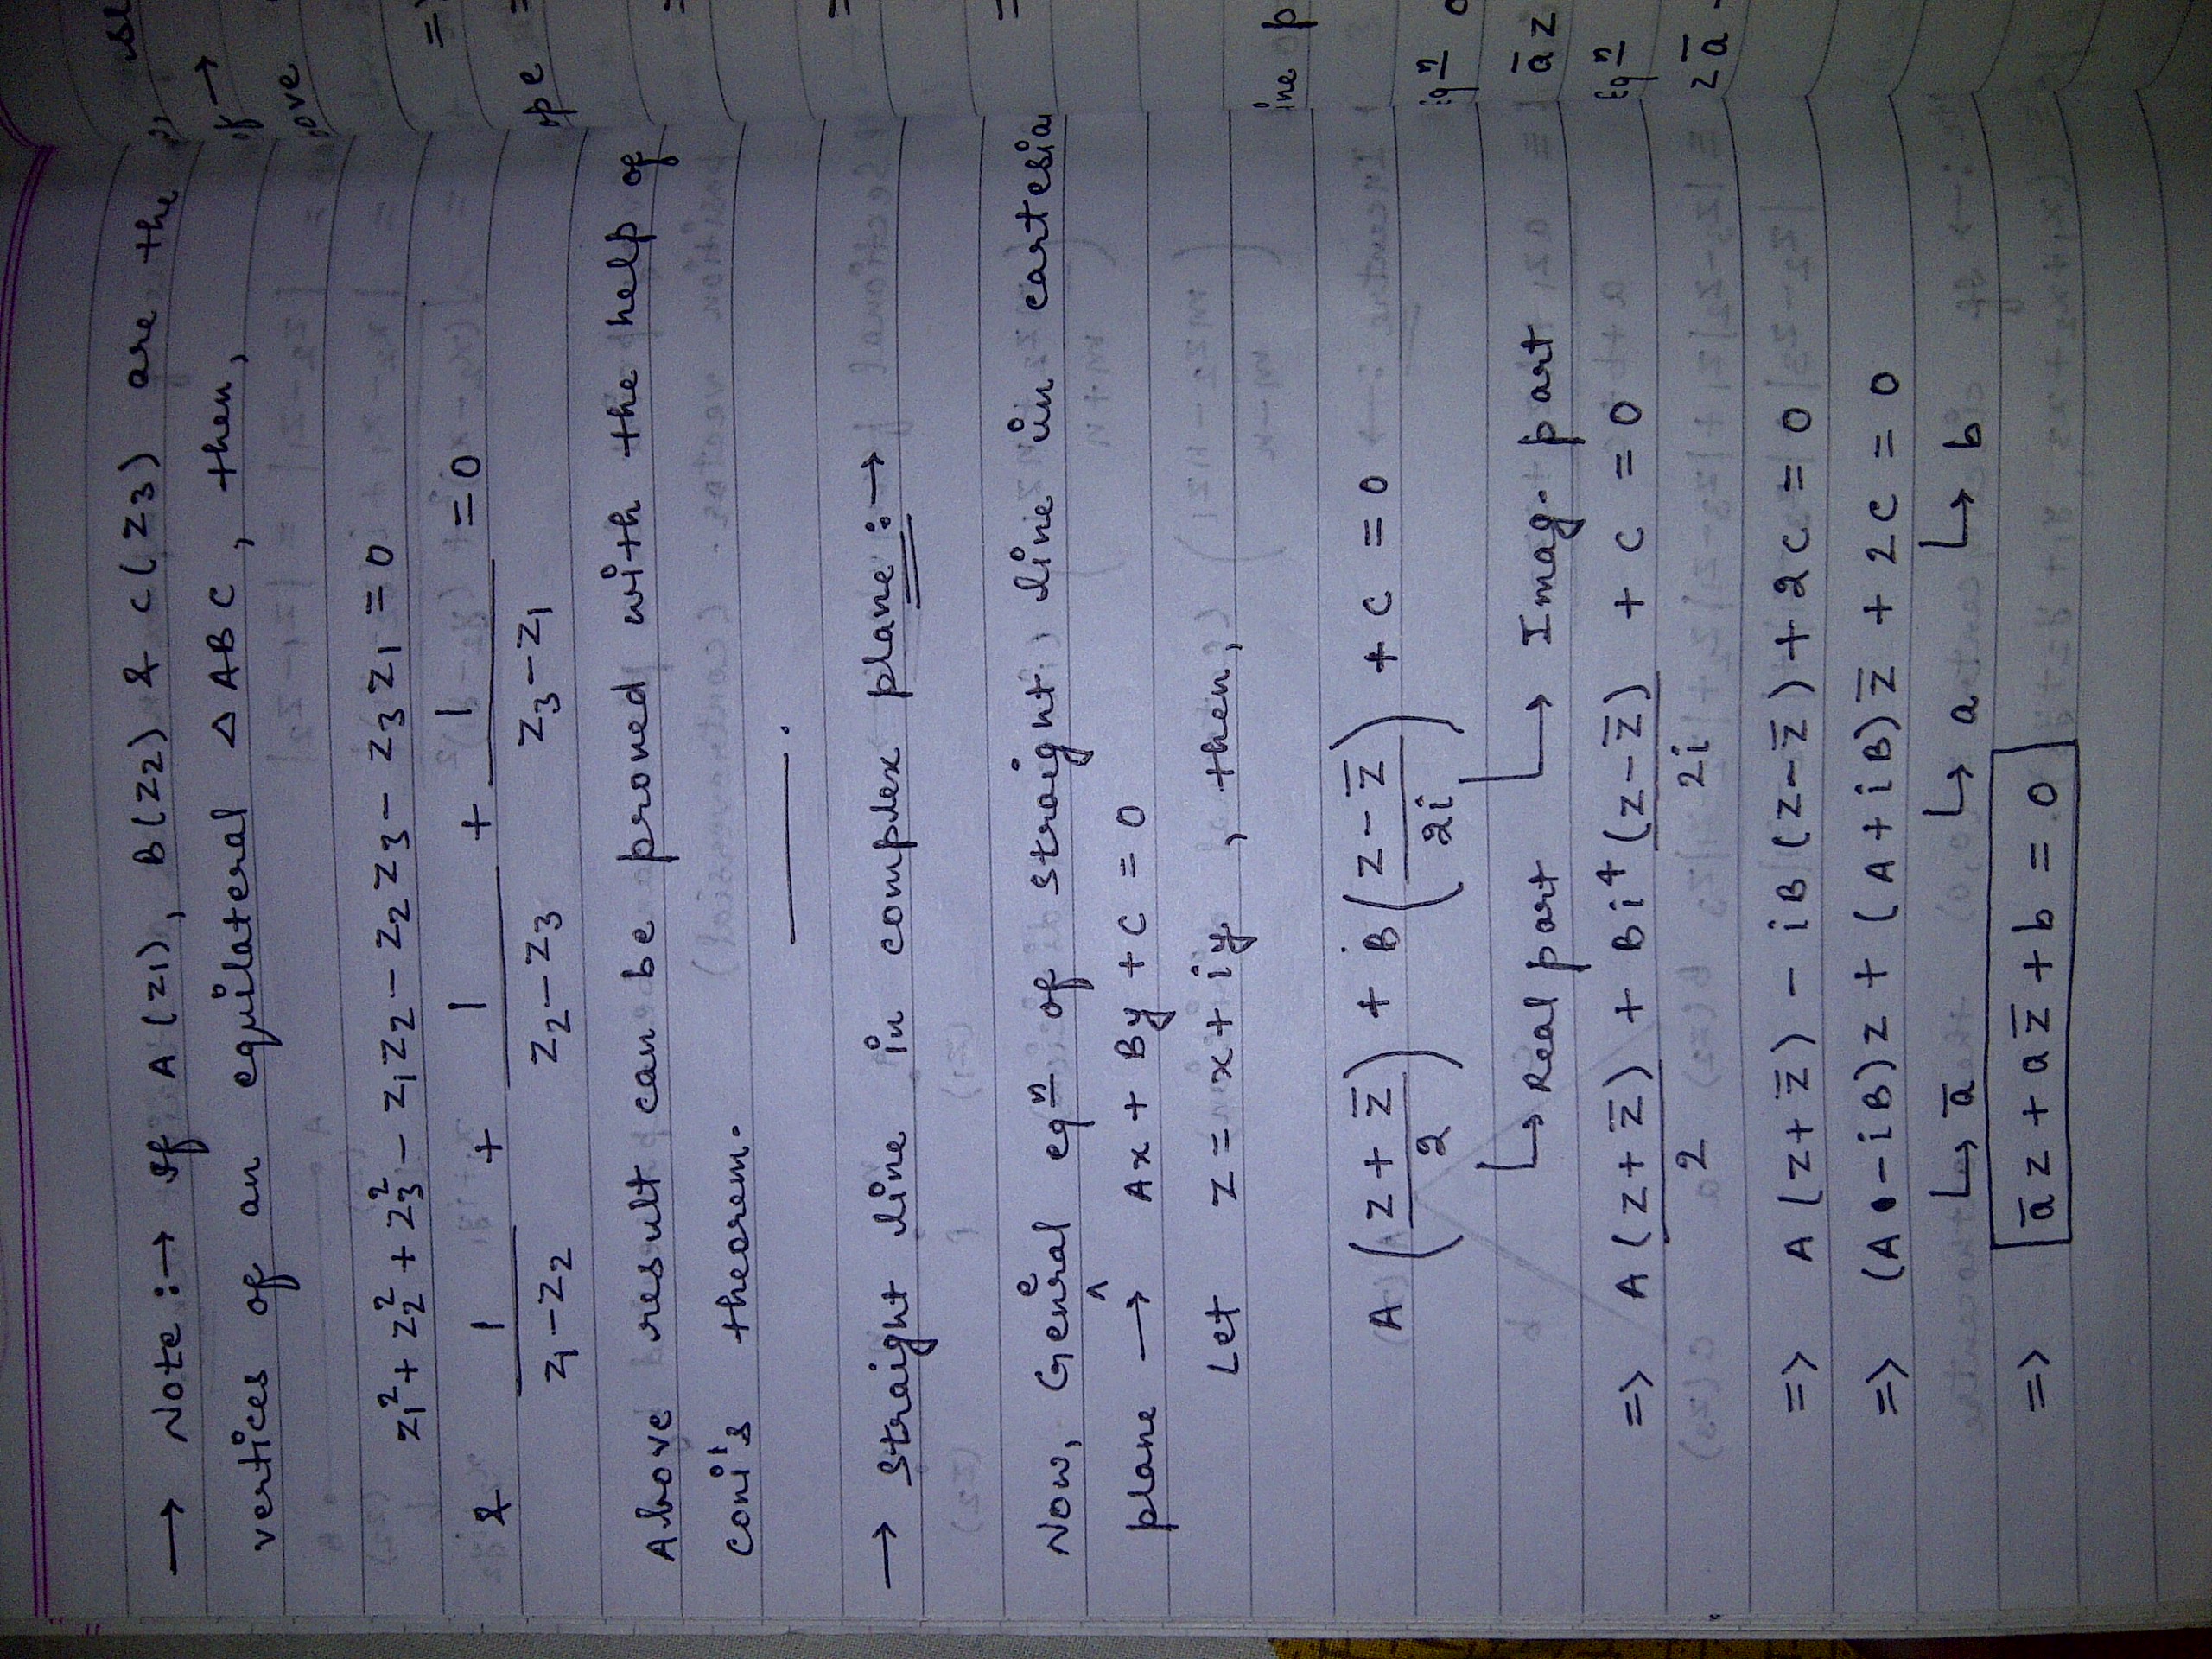 → Note :→ If A(z1), B(z2) & C(z3) are the
vertices of an equilateral △ABC, then,
z₁² + z₂² + z₃² – z₁z₂ – z₂z₃ – z₃z₁ = 0
& 1/(z₁–z₂) + 1/(z₂–z₃) + 1/(z₃–z₁) = 0
Above result can be proved with the help of
coni's theorem.
→ Straight line in complex plane :→
Now, General eqⁿ of straight line in cartesia
plane → Ax + By + C = 0
Let z = x + iy , then,
A((z + z̅)/2) + B((z – z̅)/2i) + C = 0
↳ Real part ↳ Imag. part
=> A(z + z̅)/2 + Bi⁴(z – z̅)/2i + C = 0
=> A(z + z̅) – iB(z – z̅) + 2C = 0
=> (A – iB)z + (A + iB)z̅ + 2C = 0
↳ a̅ ↳ a ↳ b
=> a̅z + az̅ + b = 0
ove
ope =
ine p
Eqⁿ
a̅z
Eqⁿ
za̅